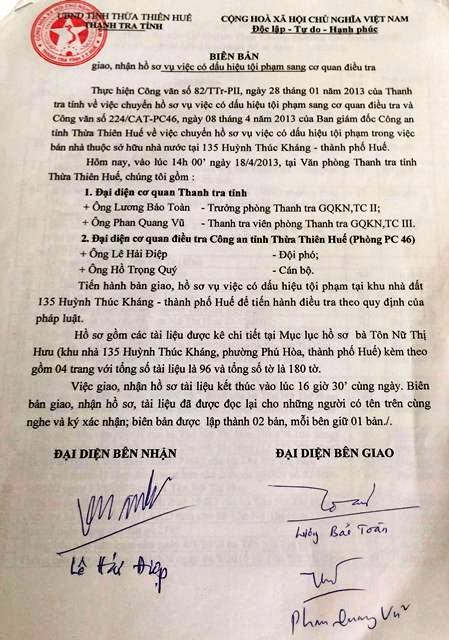 UBND TỈNH THỪA THIÊN HUẾ
THANH TRA TỈNH
CỘNG HOÀ XÃ HỘI CHỦ NGHĨA VIỆT NAM
Độc lập - Tự do - Hạnh phúc
BIÊN BẢN
giao, nhận hồ sơ vụ việc có dấu hiệu tội phạm sang cơ quan điều tra
Thực hiện Công văn số 82/TTr-PII, ngày 28 tháng 01 năm 2013 của Thanh
tra tỉnh về việc chuyển hồ sơ vụ việc có dấu hiệu tội phạm sang cơ quan điều tra và
Công văn số 224/CAT-PC46, ngày 08 tháng 4 năm 2013 của Ban giám đốc Công an
tỉnh Thừa Thiên Huế về việc chuyển hồ sơ vụ việc có dấu hiệu tội phạm trong việc
bán nhà thuộc sở hữu nhà nước tại 135 Huỳnh Thúc Kháng - thành phố Huế.
Hôm nay, vào lúc 14h 00' ngày 18/4/2013, tại Văn phòng Thanh tra tỉnh
Thừa Thiên Huế, chúng tôi gồm :
1. Đại diện cơ quan Thanh tra tỉnh
+ Ông Lương Bảo Toàn - Trưởng phòng Thanh tra GQKN,TC II;
+ Ông Phan Quang Vũ - Thanh tra viên phòng Thanh tra GQKN,TC III.
2. Đại diện cơ quan điều tra Công an tỉnh Thừa Thiên Huế (Phòng PC 46)
+ Ông Lê Hải Điệp - Đội phó;
+ Ông Hồ Trọng Quý - Cán bộ.
Tiến hành bàn giao, hồ sơ vụ việc có dấu hiệu tội phạm tại khu nhà đất
135 Huỳnh Thúc Kháng - thành phố Huế để tiến hành điều tra theo quy định của
pháp luật.
Hồ sơ gồm các tài liệu được kê chi tiết tại Mục lục hồ sơ bà Tôn Nữ Thị
Hưu (khu nhà 135 Huỳnh Thúc Kháng, phường Phú Hòa, thành phố Huế) kèm theo
gồm 04 trang với tổng số tài liệu là 96 và tổng số tờ là 180 tờ.
Việc giao, nhận hồ sơ tài liệu kết thúc vào lúc 16 giờ 30' cùng ngày. Biên
bản giao, nhận hồ sơ, tài liệu đã được đọc lại cho những người có tên trên cùng
nghe và ký xác nhận; biên bản được lập thành 02 bản, mỗi bên giữ 01 bản./.
ĐẠI DIỆN BÊN NHẬN
ĐẠI DIỆN BÊN GIAO
Lê Hải Điệp
Lương Bảo Toàn
Phan Quang Vũ